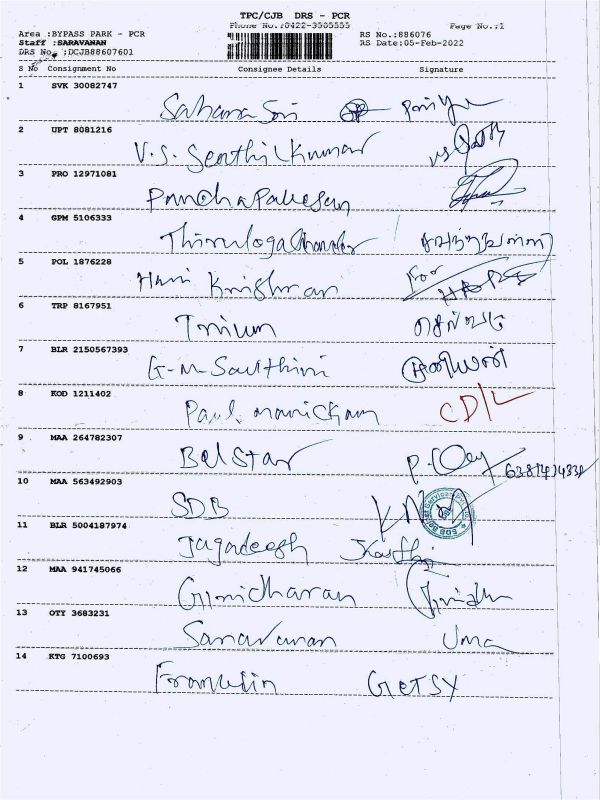 TPC/CJB DRS - PCR
Phone No.:0422-3505555 Page No.:1
Area :BYPASS PARK - PCR RS No.:886076
Staff :SARAVANAN RS Date:05-Feb-2022
DRS No. :DCJB88607601
S No Consignment No Consignee Details Signature
1 SVK 30082747
Sahana Sri
2 UPT 8081216
V.S. Senthil Kumar
3 PRO 12971081
Panchapakesan
4 GPM 5106333
Thirulogachandar
5 POL 1876228
Hari Krishnan For
6 TRP 8167951
7 BLR 2150567393
8 KOD 1211402
Paul manickam CD/L
9 MAA 264782307
BelStar
10 MAA 563492903
SDB
11 BLR 5004187974
Jagadeesh
12 MAA 941745066
Giridharan
13 OTY 3683231
Saravanan Uma
14 KTG 7100693
Franklin GetSY